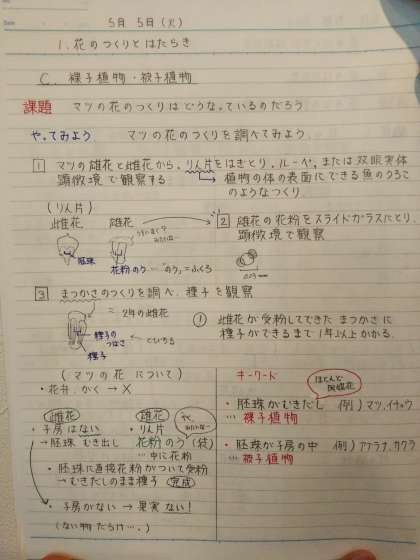 5月 5日(火)
1.花のつくりとはたらき
C. 裸子植物・被子植物
課題 マツの花のつくりはどうなっているのだろう
やってみよう マツの花のつくりを調べてみよう
1 マツの雄花と雌花から、りん片をはぎとり、ルーペ、または双眼実体
顕微境で観察する
植物の体の表面にできる魚のうろこ
のようなつくり
(りん片)
雌花 雄花
胚珠
花粉のう…"のう"=ふくろ
2 雄花の花粉をスライドガラスにとり、
顕微境で観察
3 まつかさのつくりを調べ、種子を観察
=2年の雌花
種子の
つばさ
種子
① 雌花が受粉してできた まつかさに
種子ができるまで1年以上かかる
(マツの花について)
・花弁、がく→×
雌花 雄花
・子房はない ・りん片
→胚珠むき出し 花粉のう(袋)
…中に花粉
・胚珠に直接花粉がついて受粉
→むきだしのまま種子 完成
・子房がない→果実ない!
(ない物だらけ…。)
キーワード
ほとんど
・胚珠がむきだし 例)マツ、イチョウ
…裸子植物
・胚珠が子房の中 例)アブラナ、サクラ
…被子植物